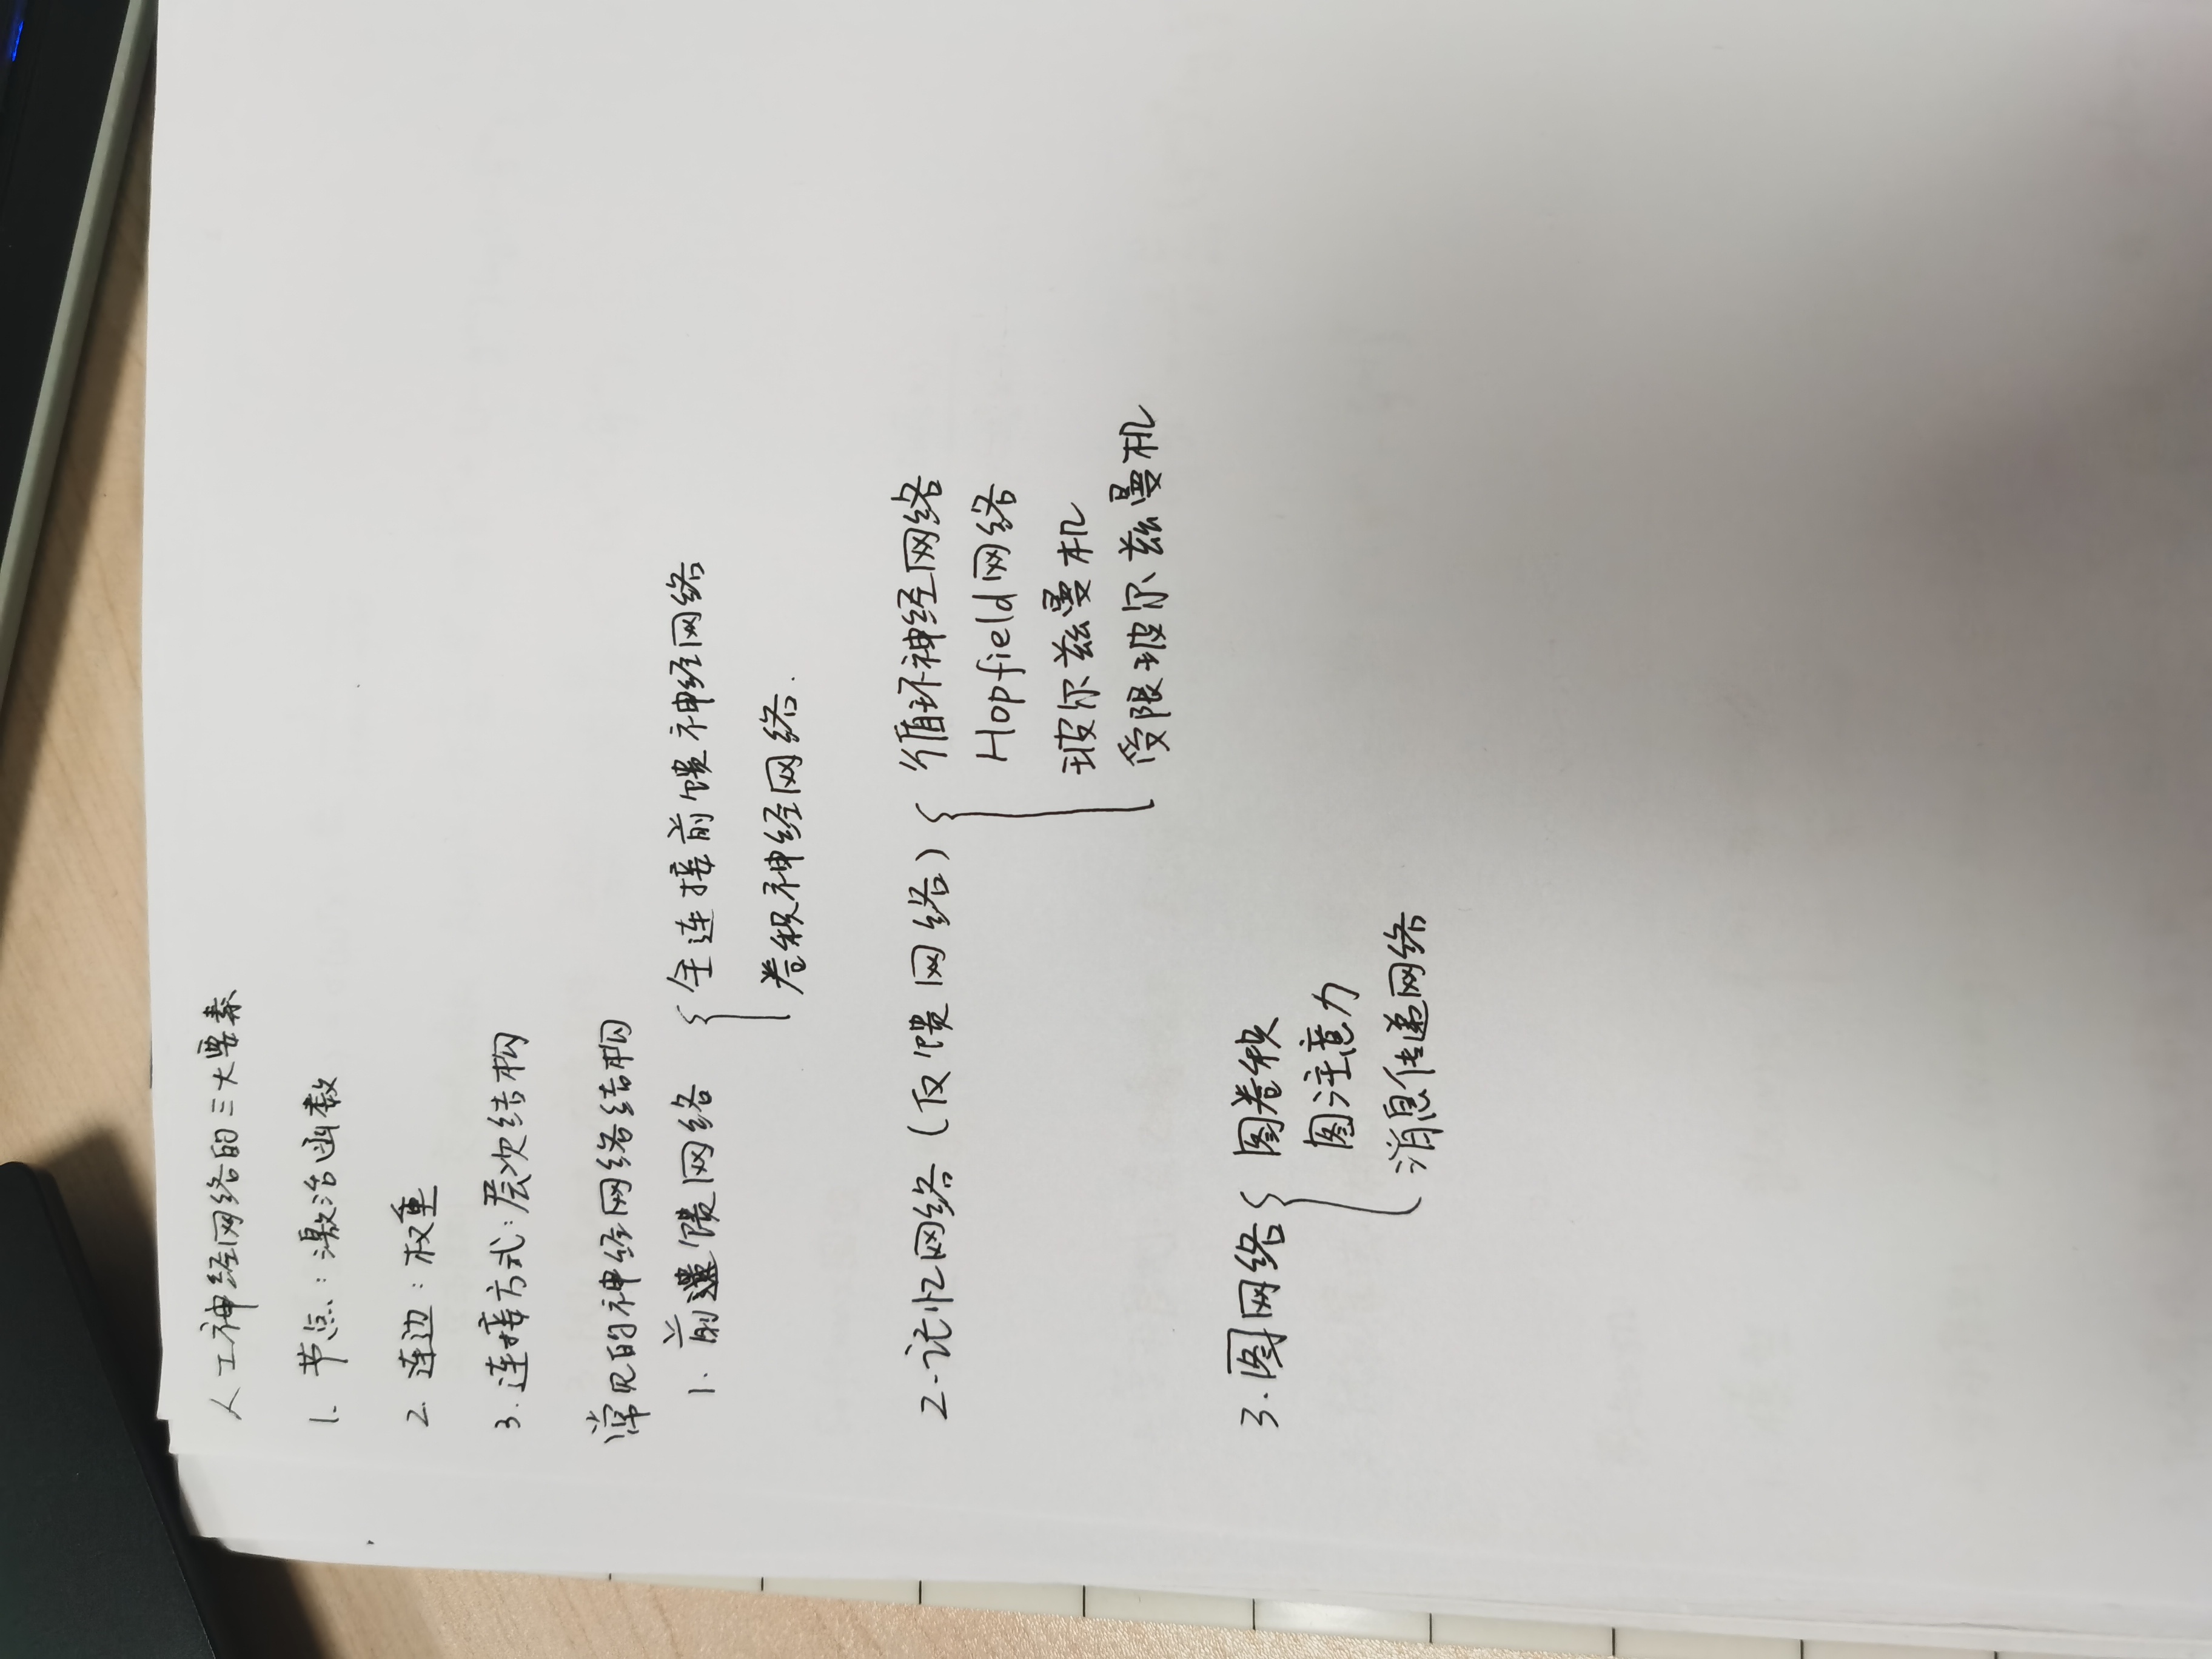 人工神经网络的三大要素
1. 节点：激活函数
2. 连边：权重
3. 连接方式：层次结构
常见的神经网络结构
1. 前馈网络 { 全连接前馈神经网络
卷积神经网络.
2. 记忆网络（反馈网络） { 循环神经网络
Hopfield网络
玻尔兹曼机
受限玻尔兹曼机
3. 图网络 { 图卷积
图注意力
消息传递网络